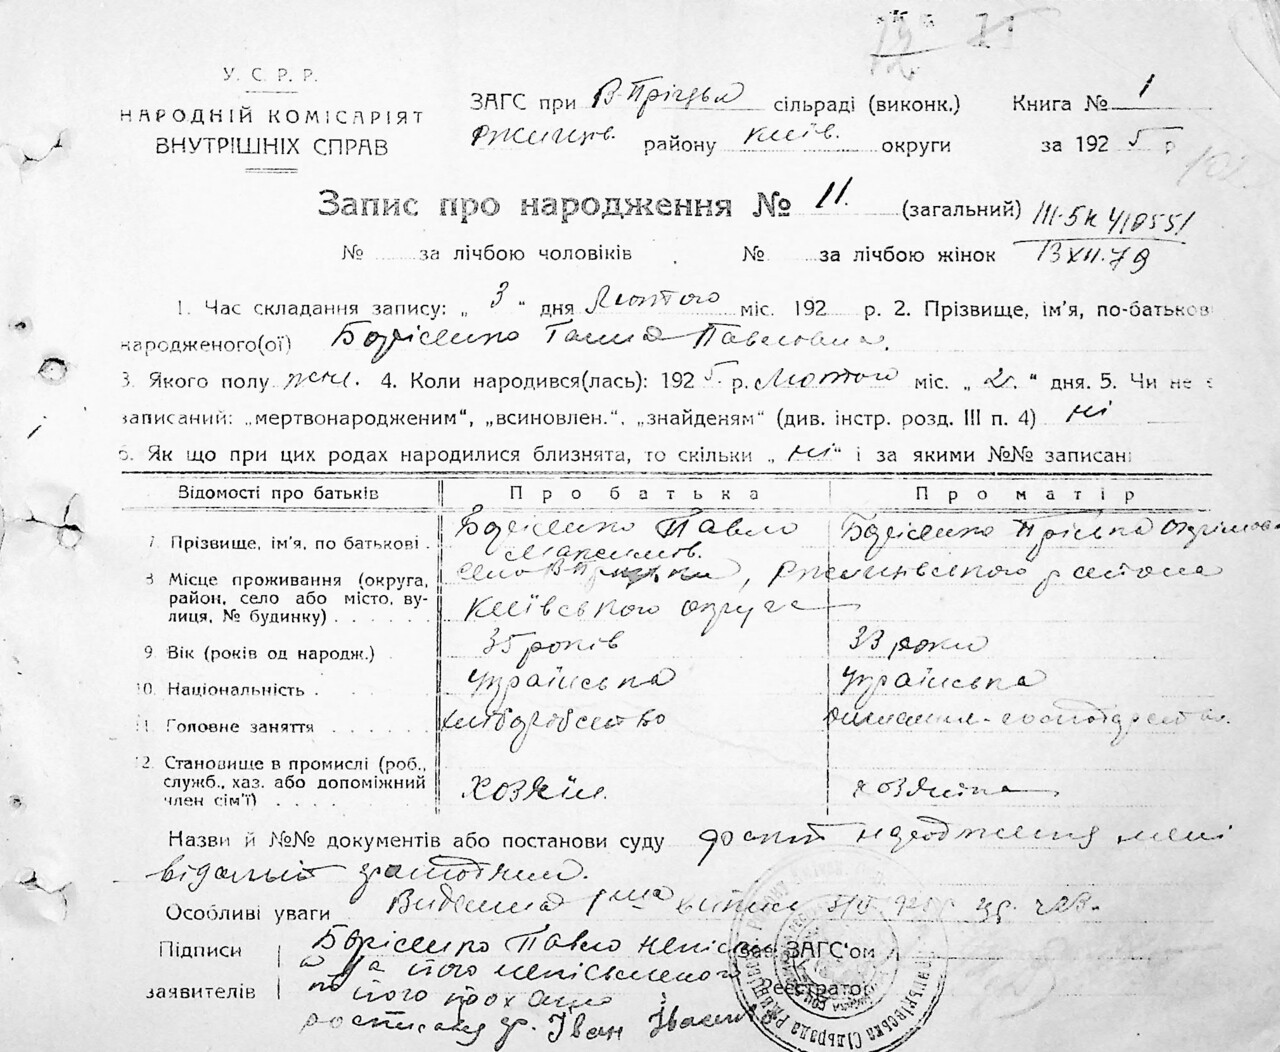 У. С. Р. Р.
НАРОДНІЙ КОМІСАРІЯТ
ВНУТРІШНІХ СПРАВ
ЗАГС при В-Пріцьки сільраді (виконк.) Книга № 1
Ржищів. району Київ. округи за 1925 р
Запис про народження № 11. (загальний)
III-5К 410551
13 XII.79
№ за лічбою чоловіків № за лічбою жінок
1. Час складання запису: „ 3 “ дня Лютого міс. 192 р. 2. Прізвище, ім'я, по-батькові
народженого(ої) Борісенко Ганна Павловна.
3. Якого полу жін. 4. Коли народився(лась): 1925 р. Лютого міс. „ 2 “ дня. 5. Чи не є
записаний: „мертвонародженим“, „всиновлен.“, „знайденям“ (див. інстр. розд. III п. 4) ні
6. Як що при цих родах народилися близнята, то скільки „ ні “ і за якими №№ записані
Відомості про батьків Про батька Про матір
7. Прізвище, ім'я, по батькові . Борісенко Павло Максимов. Борісенко Пріська
8 Місце проживання (округа, район, село або місто, вулиця, № будинку) . . . . . . село В-Пріцьки, Ржищівського района
Київського округа
9. Вік (років од народж.) . 35 років 33 роки
10. Національність . Українська Українська
11. Головне заняття . . . . . . хліборобство домашнє-господарство.
12. Становище в промислі (роб., служб., хаз. або допоміжний член сім'ї) . . . . . хозяїн. хозяйка
Назви й №№ документів або постанови суду факт народження мені
відомий
Особливі уваги Видонна
Підписи Борісенко Павло непісьм зав. ЗАГС'ом
а за його непісьменого
заявителів по його проханю Реєстратор
росписався гр. Іван